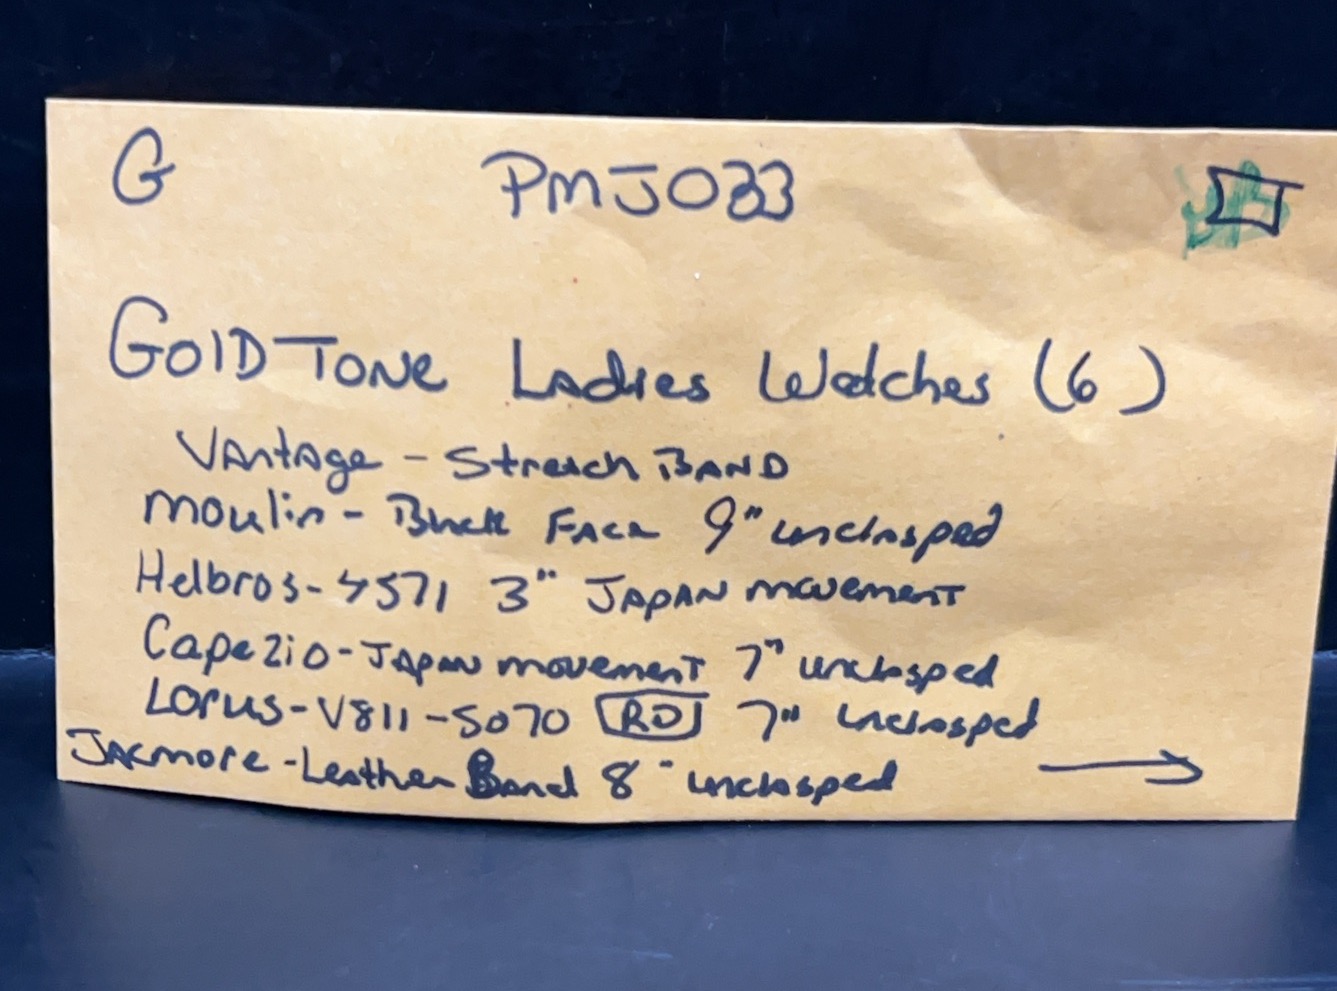 G PMJ033
GOlD TONe LAdies Watches (6)
VANtAge - Stretch BAND
Moulin - Black FAce 9" unclasped
Helbros - 4571 3" JAPAN movement
Capezio - JAPAN movement 7" unclasped
Lorus - V811 - 5070 RO 7" unclasped
JAcmore - Leather Band 8" unclasped